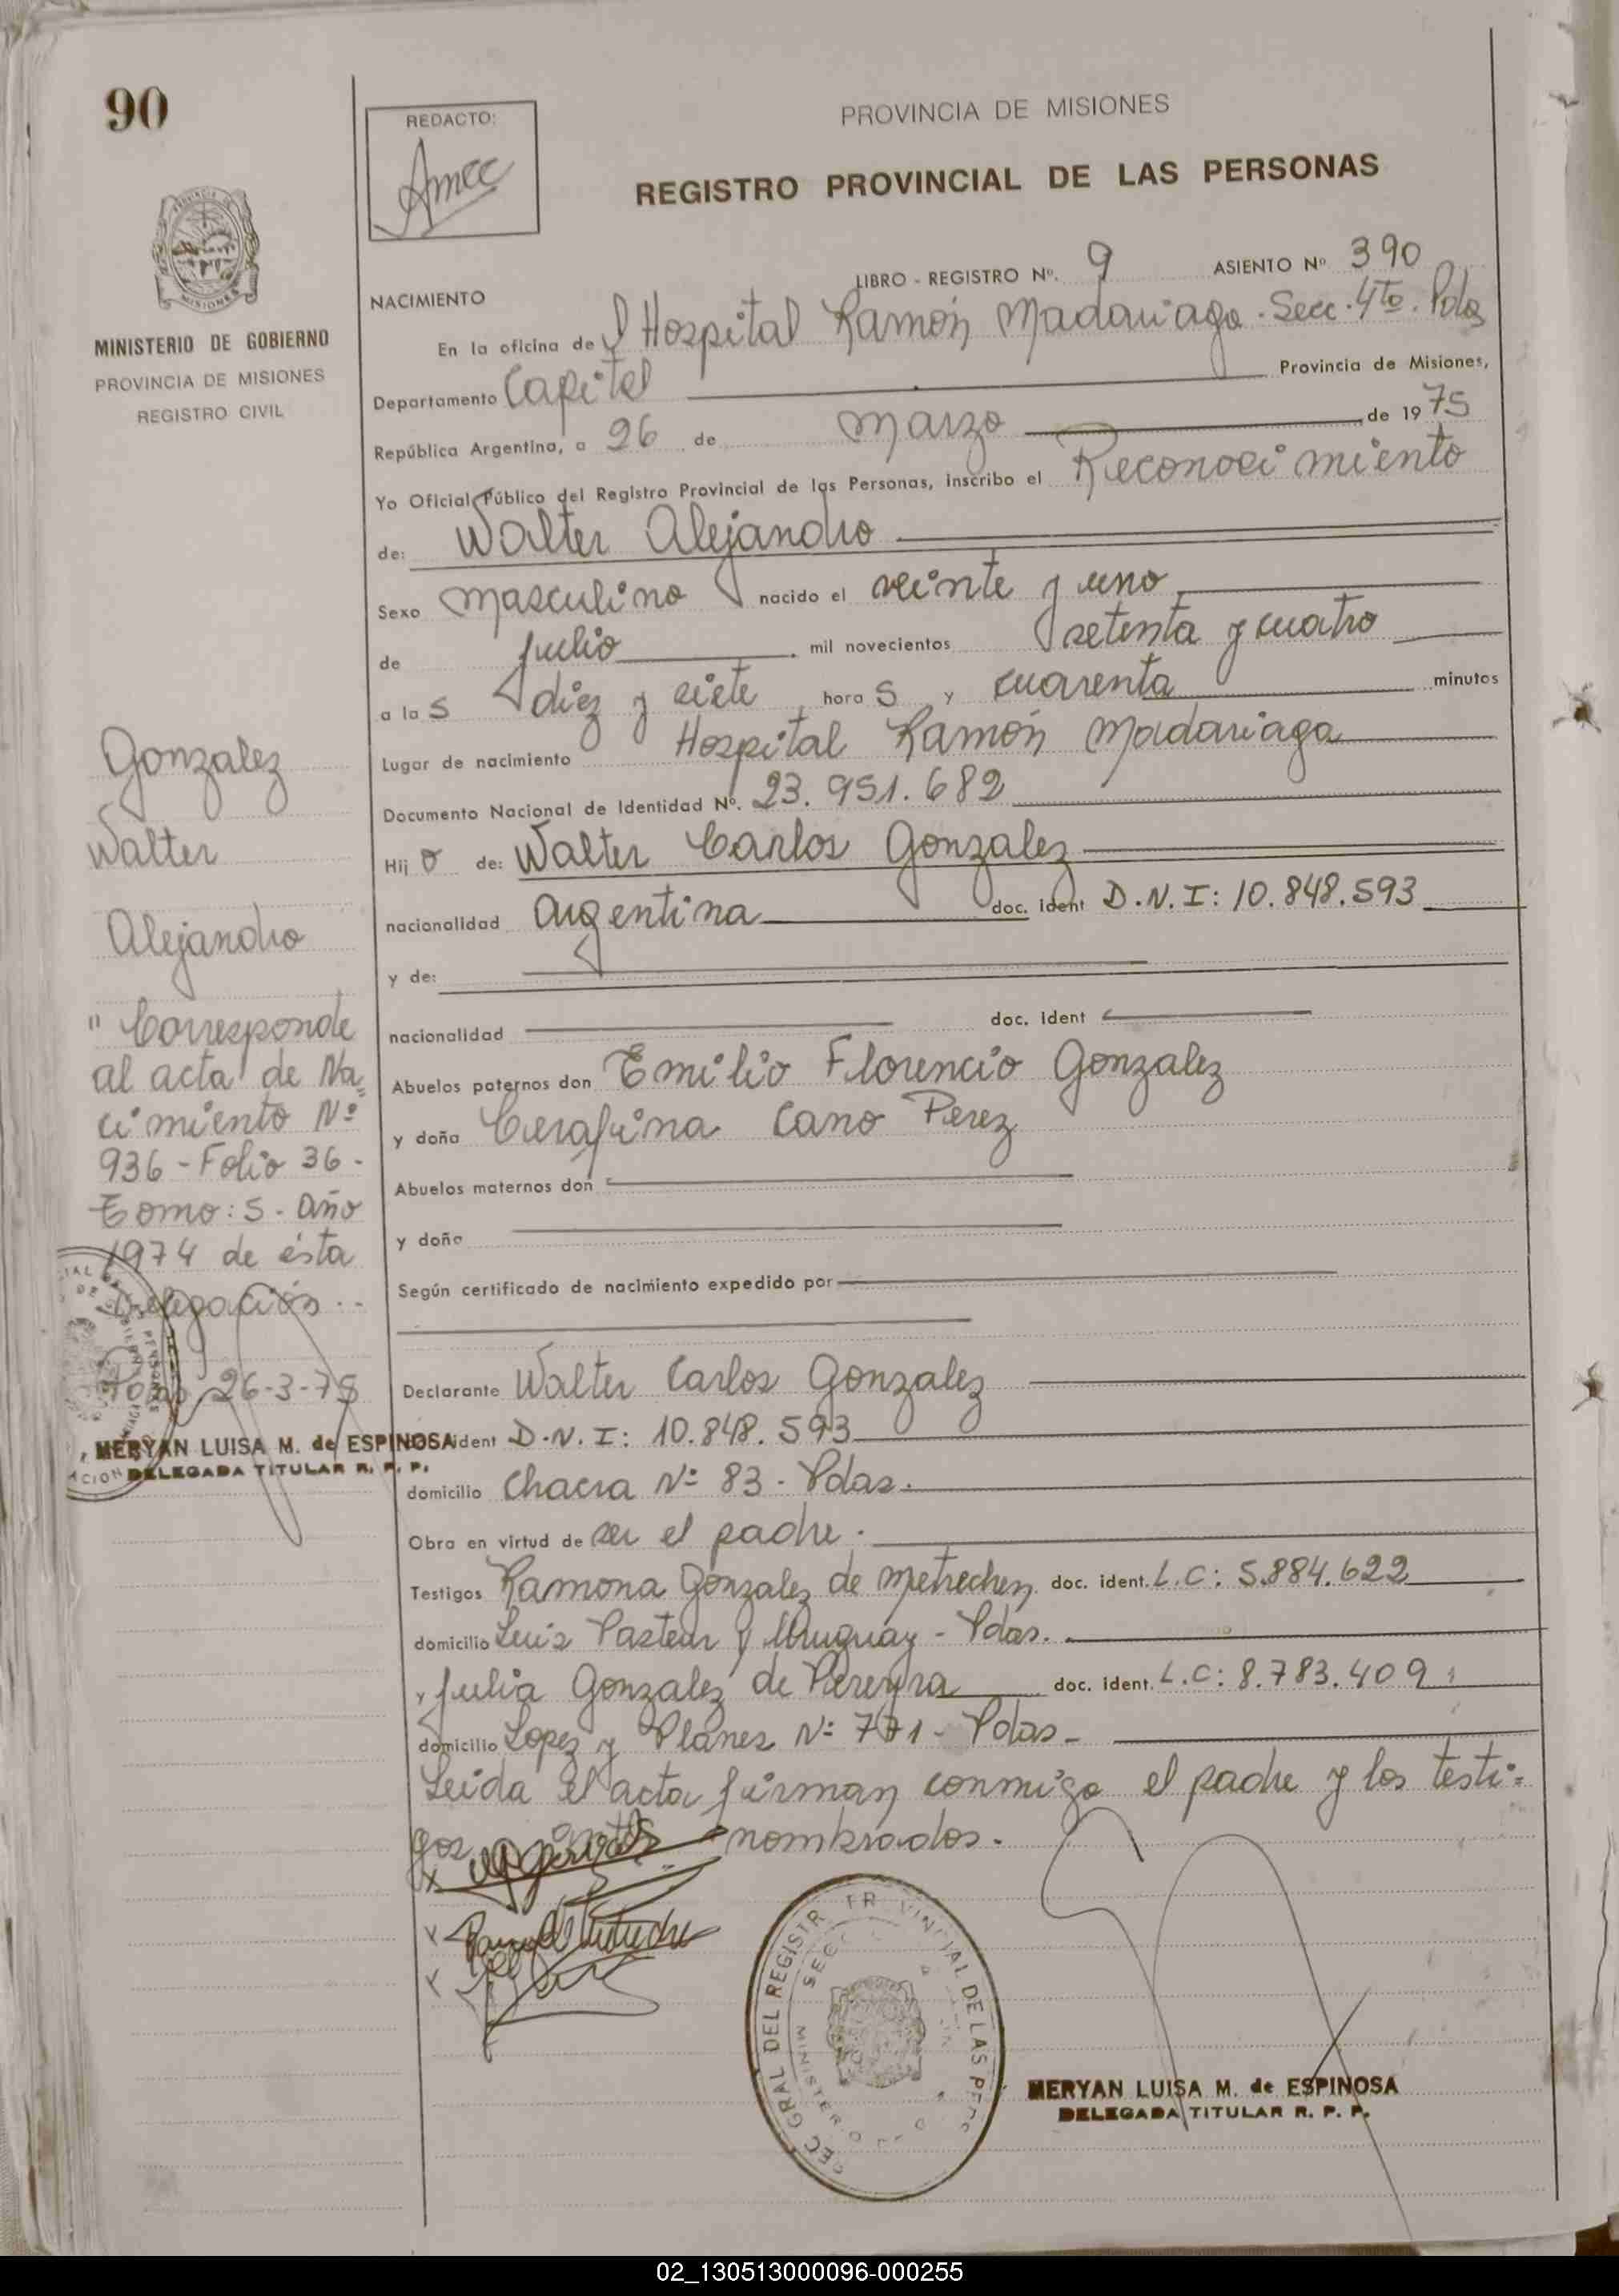 90
REDACTO:
PROVINCIA DE MISIONES
REGISTRO PROVINCIAL DE LAS PERSONAS
LIBRO - REGISTRO Nº. 9 ASIENTO Nº 390
NACIMIENTO
MISIONES
MINISTERIO DE GOBIERNO
PROVINCIA DE MISIONES
REGISTRO CIVIL
En la oficina de l Hospital Ramón Madariaga. Secc. 4to. Pdas
Departamento Capital Provincia de Misiones,
República Argentina, a 26 de Marzo de 1975
Yo Oficial Público del Registro Provincial de las Personas, inscribo el Reconocimiento
de: Walter Alejandro
Sexo Masculino nacido el veinte y uno
de Julio mil novecientos setenta y cuatro
a las diez y siete horas y cuarenta minutos
Lugar de nacimiento Hospital Ramón Madariaga
Documento Nacional de Identidad Nº. 23.951.682
Hijo de: Walter Carlos Gonzalez
nacionalidad Argentina doc. ident D.N.I: 10.848.593
y de:
nacionalidad doc. ident
Abuelos paternos don Emilio Florencio Gonzalez
y doña Cerafina Cano Perez
Abuelos maternos don
y doña
Según certificado de nacimiento expedido por
Declarante Walter Carlos Gonzalez
ident D.N.I: 10.848.593
domicilio Chacra Nº 83 - Pdas.
Obra en virtud de ser el padre.
Testigos Ramona Gonzalez de Metrechen doc. ident. L.C: 5.884.622
domicilio Luis Pasteur y Uruguay - Pdas.
y Julia Gonzalez de Pereyra doc. ident. L.C: 8.783.409
domicilio Lopez y Planes Nº 771 - Pdas -
Leida el acta firman conmigo el padre y los testi=
gos antes nombrados.
Gonzalez
Walter
Alejandro
"Corresponde
al acta de Na"
cimiento Nº
936 - Folio 36 -
Tomo: 5 - Año
1974 de ésta
Delegación..
Pdas, 26-3-75
MERYAN LUISA M. de ESPINOSA
DELEGADA TITULAR R. P. P.
MERYAN LUISA M. de ESPINOSA
DELEGADA TITULAR R. P. P.
02_130513000096-000255